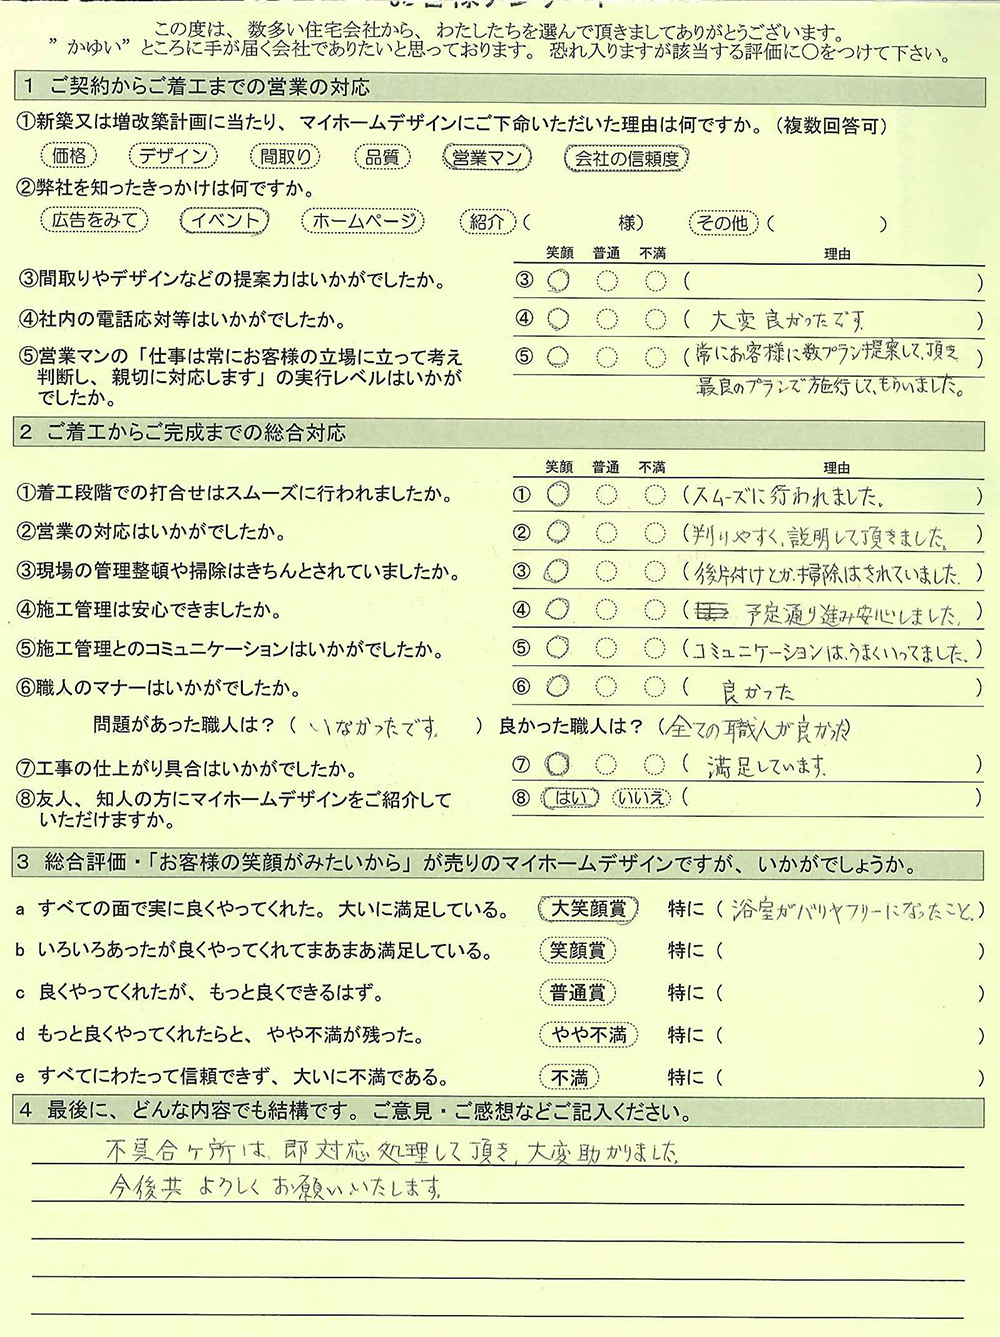 この度は、数多い住宅会社から、わたしたちを選んで頂きましてありがとうございます。
"かゆい"ところに手が届く会社でありたいと思っております。恐れ入りますが該当する評価に○をつけて下さい。
1 ご契約からご着工までの営業の対応
①新築又は増改築計画に当たり、マイホームデザインにご下命いただいた理由は何ですか。（複数回答可）
価格 デザイン 間取り 品質 営業マン 会社の信頼度
②弊社を知ったきっかけは何ですか。
広告をみて イベント ホームページ 紹介（ 様） その他（ ）
笑顔 普通 不満 理由
③間取りやデザインなどの提案力はいかがでしたか。 ③ ○ ○ ○ （ ）
④社内の電話応対等はいかがでしたか。 ④ ○ ○ ○ （ 大変良かったです。 ）
⑤営業マンの「仕事は常にお客様の立場に立って考え ⑤ ○ ○ ○ （常にお客様に数プラン提案して、頂き ）
判断し、親切に対応します」の実行レベルはいかが 最良のプランで施行して、もらいました。
でしたか。
2 ご着工からご完成までの総合対応
笑顔 普通 不満 理由
①着工段階での打合せはスムーズに行われましたか。 ① ○ ○ ○ （スムーズに行われました。 ）
②営業の対応はいかがでしたか。 ② ○ ○ ○ （判りやすく、説明して頂きました。 ）
③現場の管理整頓や掃除はきちんとされていましたか。 ③ ○ ○ ○ （後片付けとか、掃除はされていました。 ）
④施工管理は安心できましたか。 ④ ○ ○ ○ （ 予定通り進み安心しました。 ）
⑤施工管理とのコミュニケーションはいかがでしたか。 ⑤ ○ ○ ○ （コミュニケーションは、うまくいってました。）
⑥職人のマナーはいかがでしたか。 ⑥ ○ ○ ○ （ 良かった ）
問題があった職人は？（ いなかったです。 ） 良かった職人は？（全ての職人が良かった
⑦工事の仕上がり具合はいかがでしたか。 ⑦ ○ ○ ○ （ 満足しています。 ）
⑧友人、知人の方にマイホームデザインをご紹介して ⑧ はい いいえ （ ）
いただけますか。
3 総合評価・「お客様の笑顔がみたいから」が売りのマイホームデザインですが、いかがでしょうか。
a すべての面で実に良くやってくれた。大いに満足している。 大笑顔賞 特に（ 浴室がバリヤフリーになったこと。）
b いろいろあったが良くやってくれてまあまあ満足している。 笑顔賞 特に（ ）
c 良くやってくれたが、もっと良くできるはず。 普通賞 特に（ ）
d もっと良くやってくれたらと、やや不満が残った。 やや不満 特に（ ）
e すべてにわたって信頼できず、大いに不満である。 不満 特に（ ）
4 最後に、どんな内容でも結構です。ご意見・ご感想などご記入ください。
不具合ヶ所は、即対応処理して頂き、大変助かりました。
今後共よろしくお願いいたします。